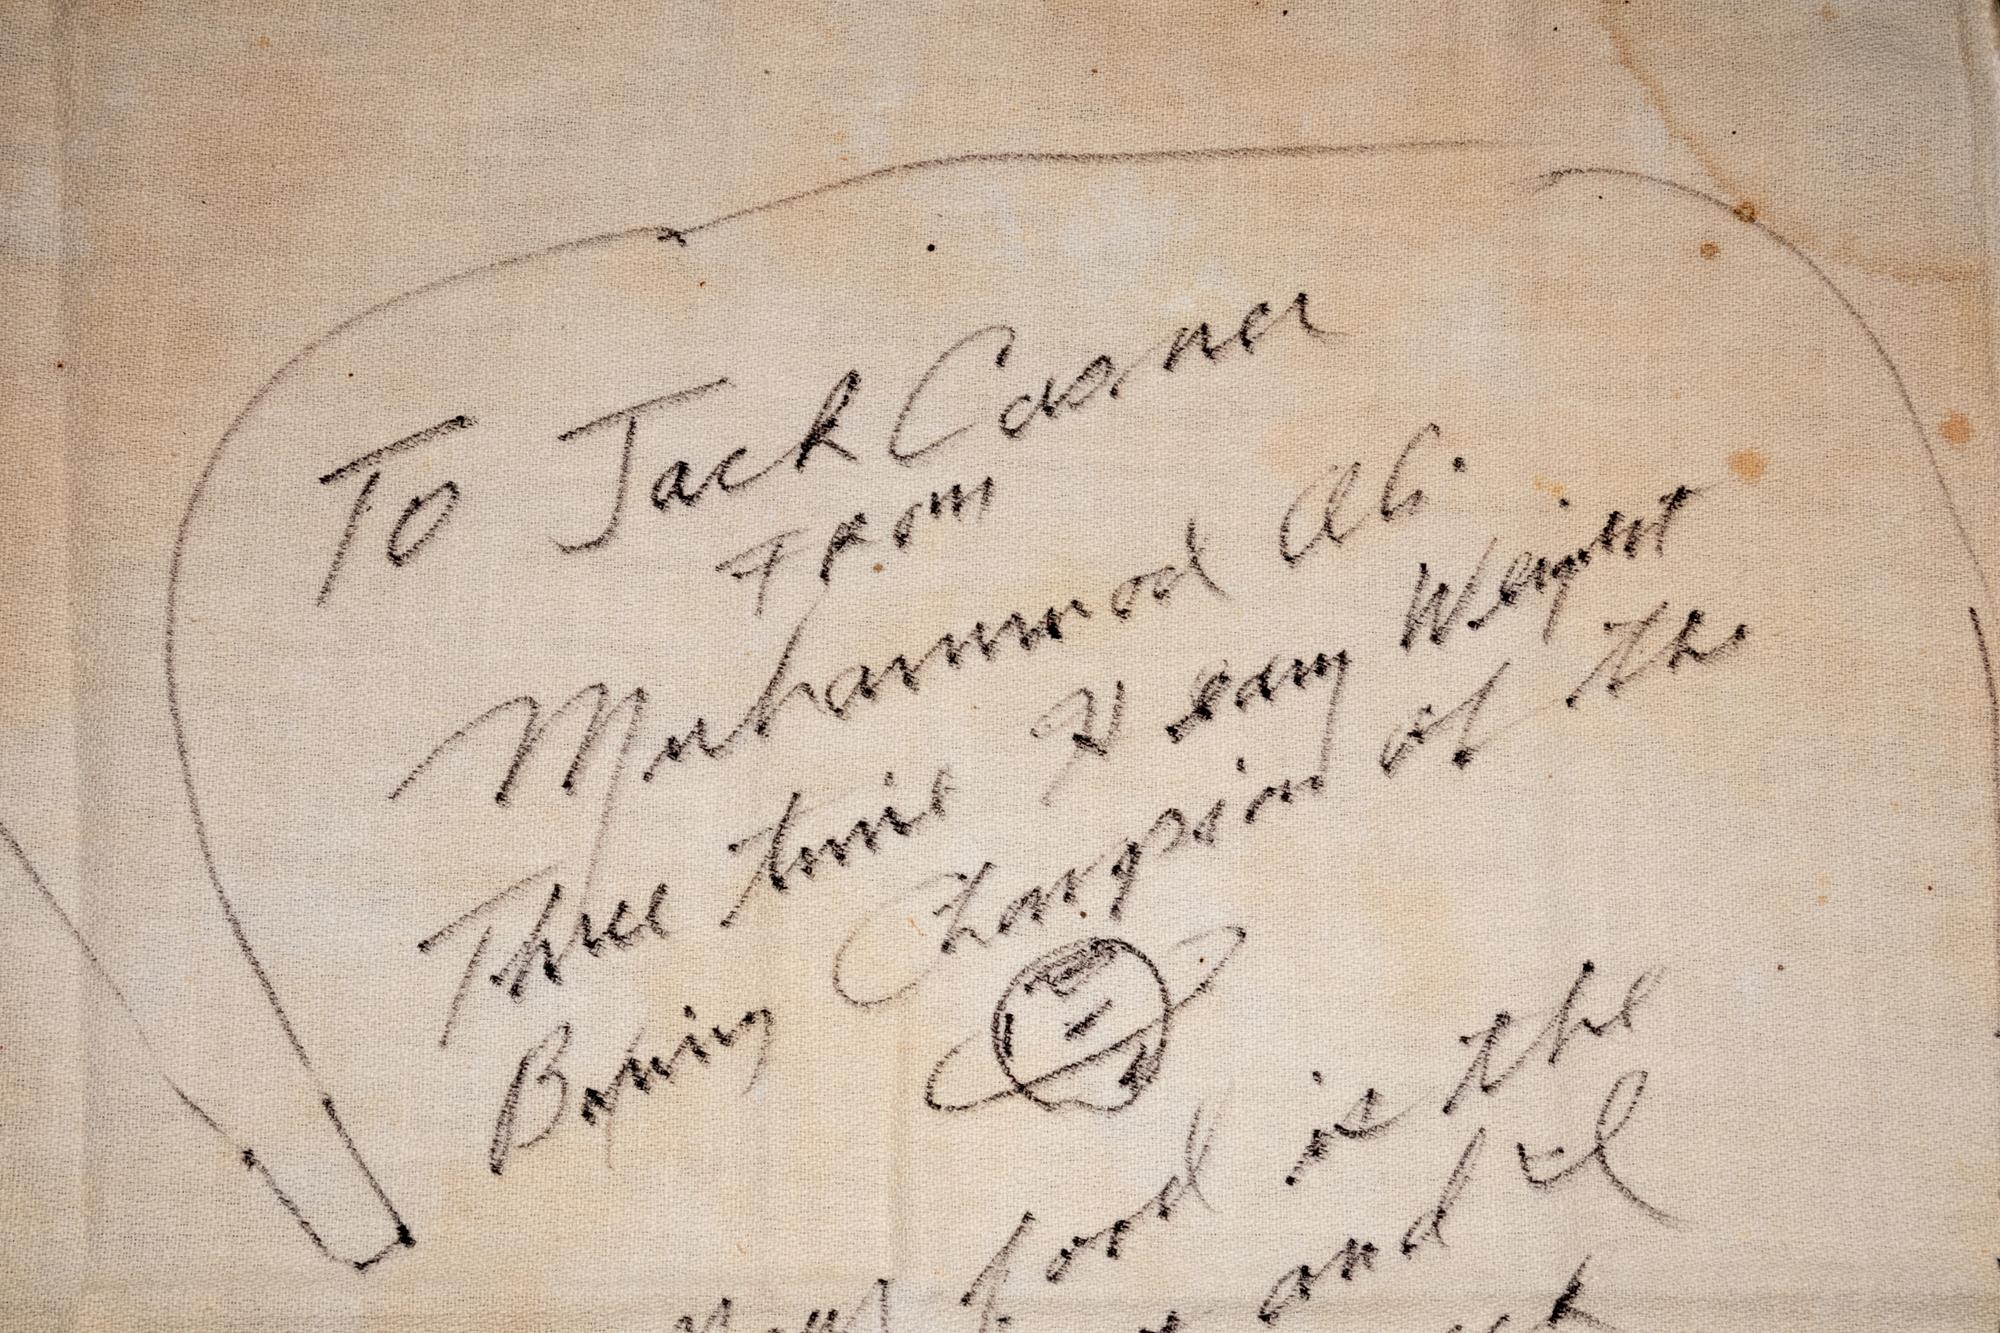 To Jack Casner
From
Muhammad Ali
Three time Heavy Weight
Boxing Champion of the
Your food is the
and